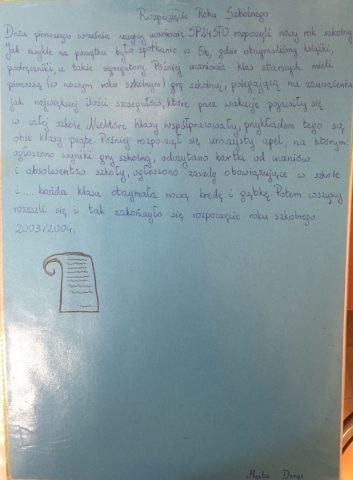 Rozpoczęcie Roku Szkolnego
Dnia pierwszego września uczniowie SP24STO rozpoczęli nowy rok szkolny.
Jak zwykle na początku było spotkanie w 56, gdzie otrzymaliśmy książki,
podręczniki, a także segregatory. Później uczniowie klas starszych mieli
pierwszą (w nowym roku szkolnym) grę szkolną, polegającą na zauważeniu
jak największej ilości szczegółów, które przez wakacje pojawiły się
w całej szkole. Niektóre klasy współpracowały, przykładem tego są
obie klasy piąte. Później rozpoczął się uroczysty apel, na którym:
ogłoszono wyniki gry szkolnej, odczytano kartki od uczniów
i absolwentów szkoły, ogłoszono zasady obowiązujące w szkole
i... każda klasa otrzymała nową kredę i gąbkę. Potem wszyscy
rozeszli się i tak zakończyło się rozpoczęcie roku szkolnego
2003/2004.